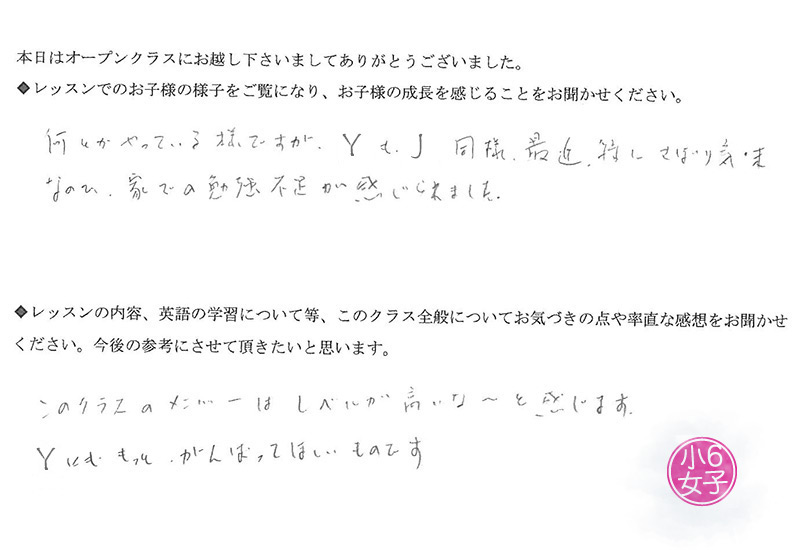 本日はオープンクラスにお越し下さいましてありがとうございました。
◆レッスンでのお子様の様子をご覧になり、お子様の成長を感じることをお聞かせください。
何とかやっている様ですが、Yも、J同様、最近、特にさぼり気味
なので、家での勉強不足が感じられました。
◆レッスンの内容、英語の学習について等、このクラス全般についてお気づきの点や率直な感想をお聞かせ
ください。今後の参考にさせて頂きたいと思います。
このクラスのメンバーはレベルが高いな～と感じます。
Yにももっと、がんばってほしいものです
小6
女子